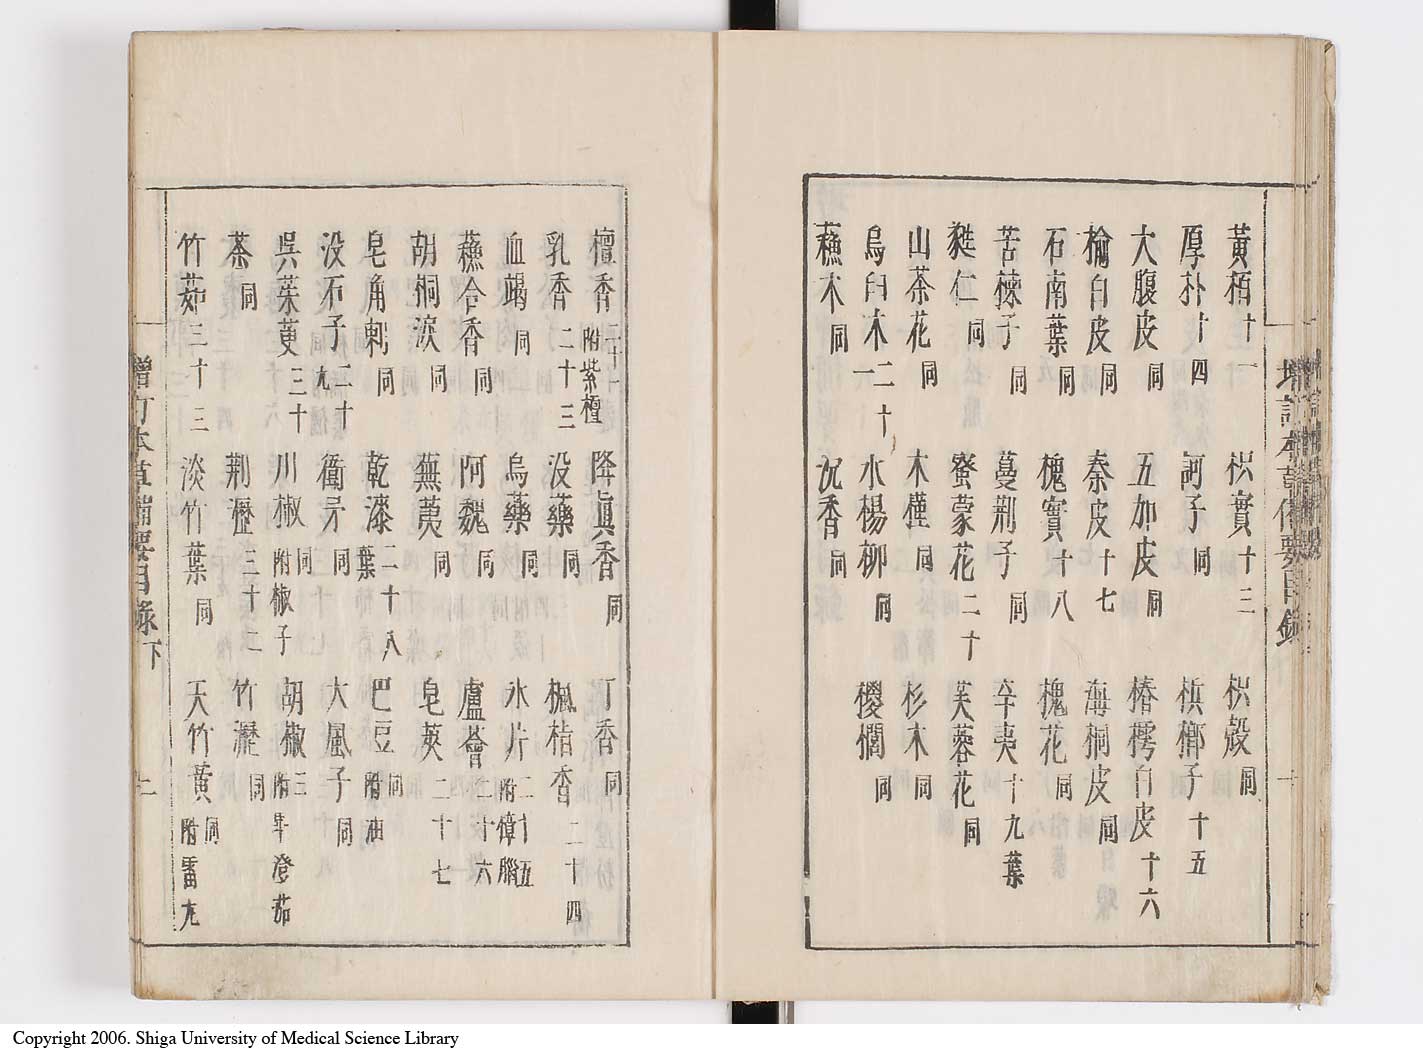 黃栢十一 枳實十三 枳殼同
厚朴十四 訶子同 梹榔子十五
大腹皮同 五加皮同 椿樗白皮十六
榆白皮同 秦皮十七 海桐皮同
石南葉同 槐實十八 槐花同
苦楝子同 蔓荊子同 辛夷十九葉
蕤仁同 蜜蒙花二十 芙蓉花同
山茶花同 木槿同 杉木同
烏臼木二十一 水楊柳同 椶櫚同
蘇木同 沉香同
檀香二十二附紫檀 降眞香同 丁香同
乳香二十三 没藥同 楓梏香二十四
血竭同 烏藥同 氷片二十五附樟腦
蘓合香同 阿魏同 蘆薈二十六
胡桐淚同 蕪荑同 皂莢二十七
皂角刺同 乾漆二十八葉 巴豆同附油
没石子二十九 衞矛同 大風子同
吳茱萸三十 川椒同附椒子 胡椒三附畢澄茄
茶同 荆瀝三十二 竹瀝同
竹茹三十三 淡竹葉同 天竹黃同附雷丸
增訂本草備要目錄下
Copyright 2006. Shiga University of Medical Science Library